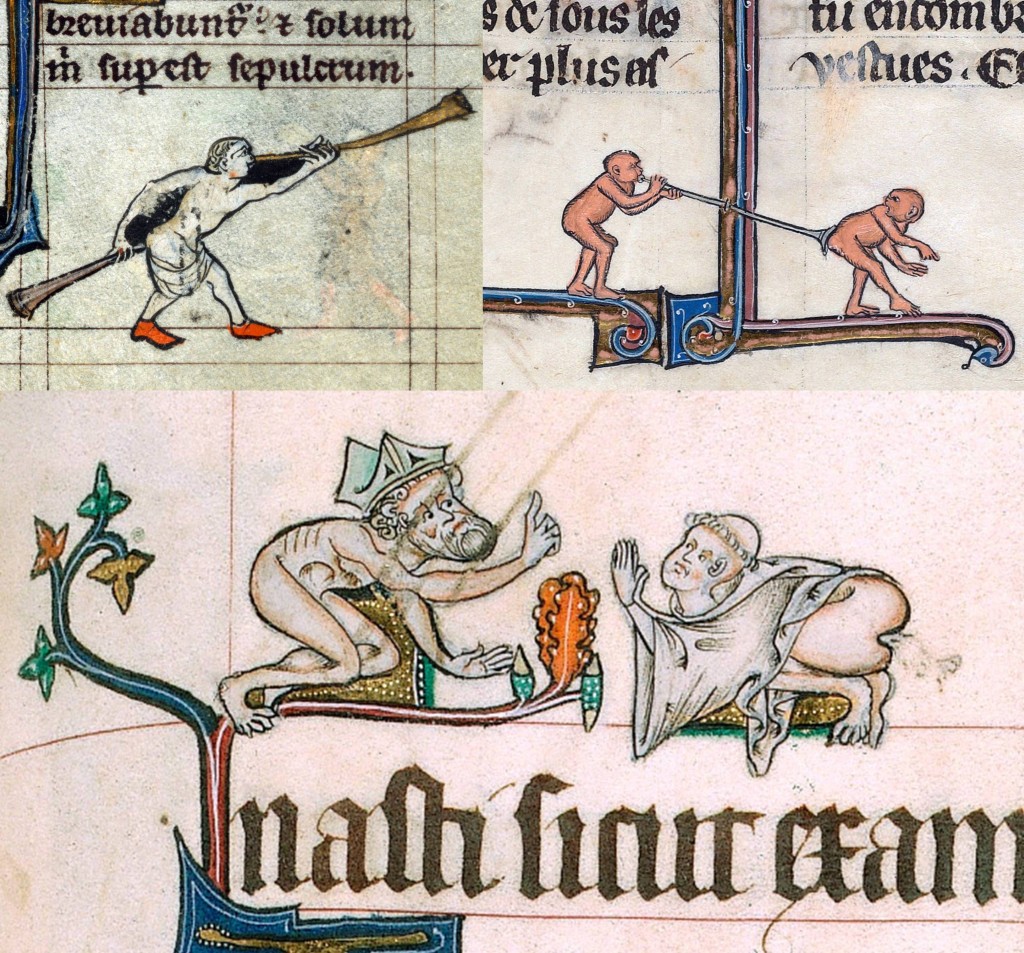 breuiabunt᷑ : ⁊ solum
m̄ suꝑest sepulcrum.
s de tous les
er plus as
tu encomb
vestues . E
nasti sicut exam